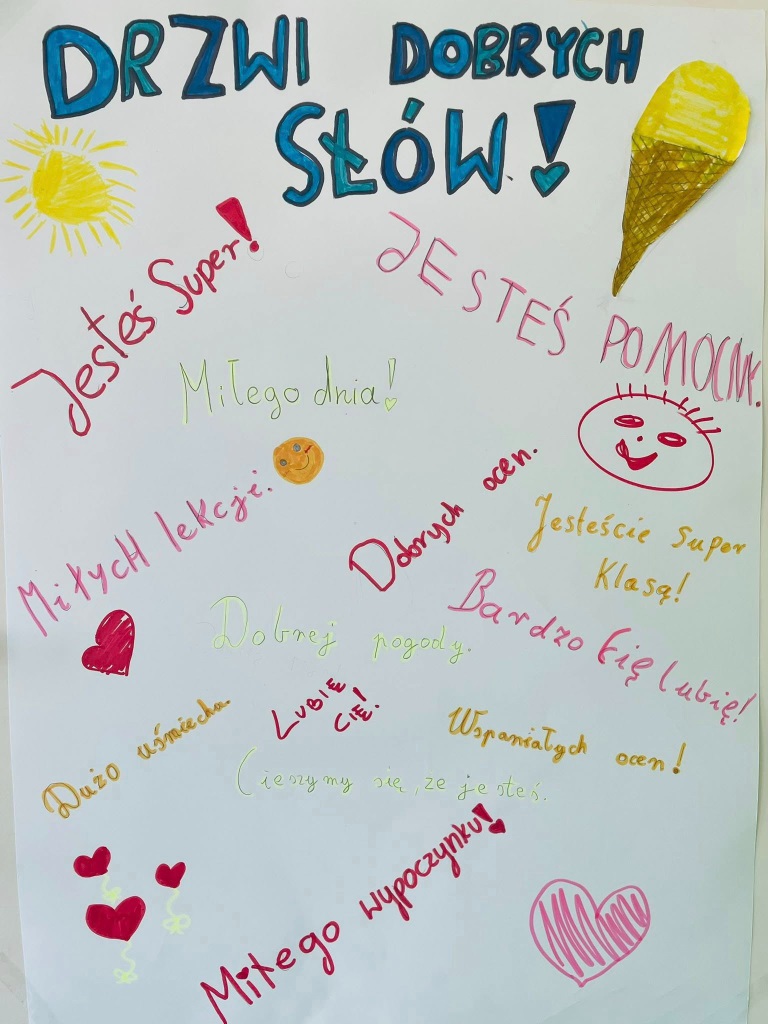 DRZWI DOBRYCH
SŁÓW!
Jesteś Super!
JESTEŚ POMOCNY.
Miłego dnia!
Miłych lekcji.
Dobrych ocen.
Jesteście super
klasą!
Dobrej pogody.
Bardzo Cię lubię!
Dużo uśmiechu.
LUBIĘ
CIĘ!
Wspaniałych ocen!
Cieszymy się, że jesteś.
Miłego wypoczynku!